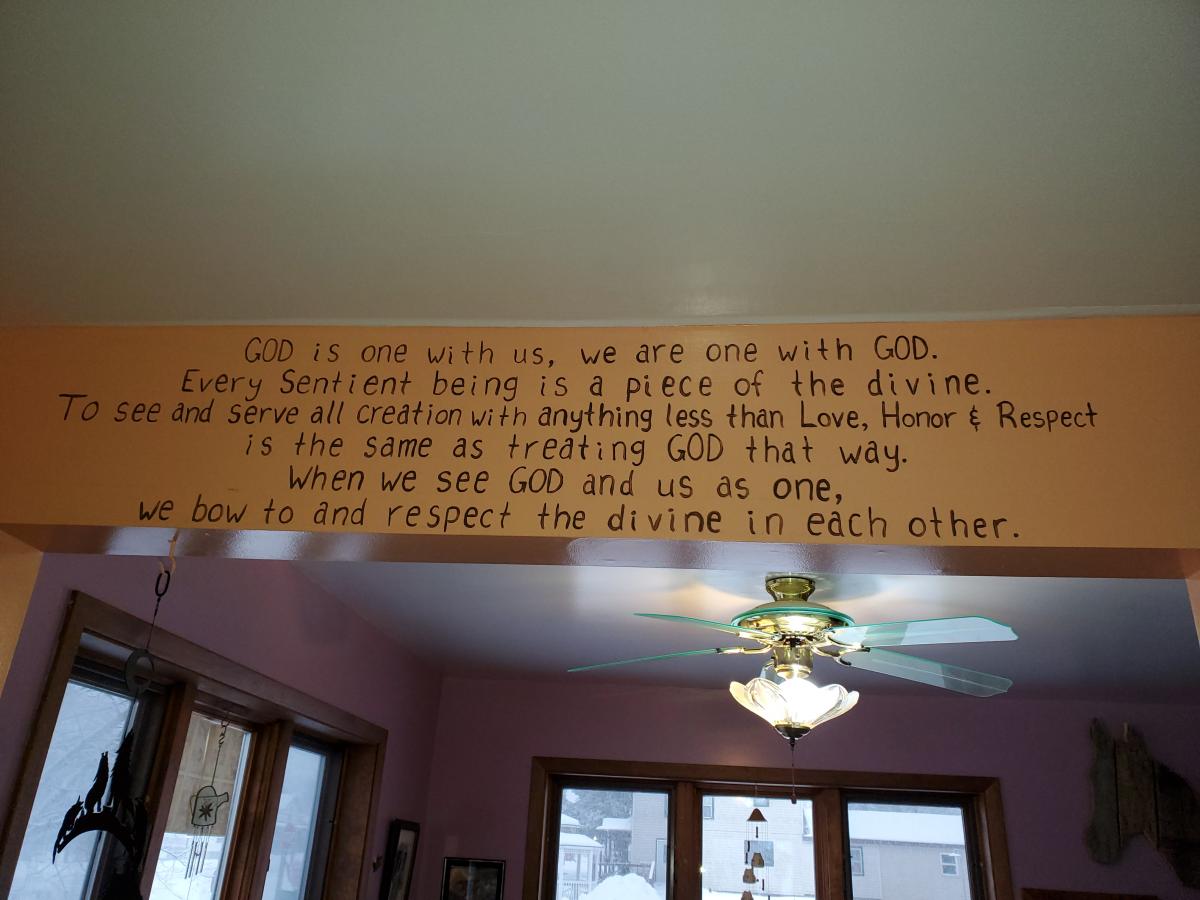 GOD is one with us, we are one with GOD.
Every Sentient being is a piece of the divine.
To see and serve all creation with anything less than Love, Honor & Respect
is the same as treating GOD that way.
When we see GOD and us as one,
we bow to and respect the divine in each other.